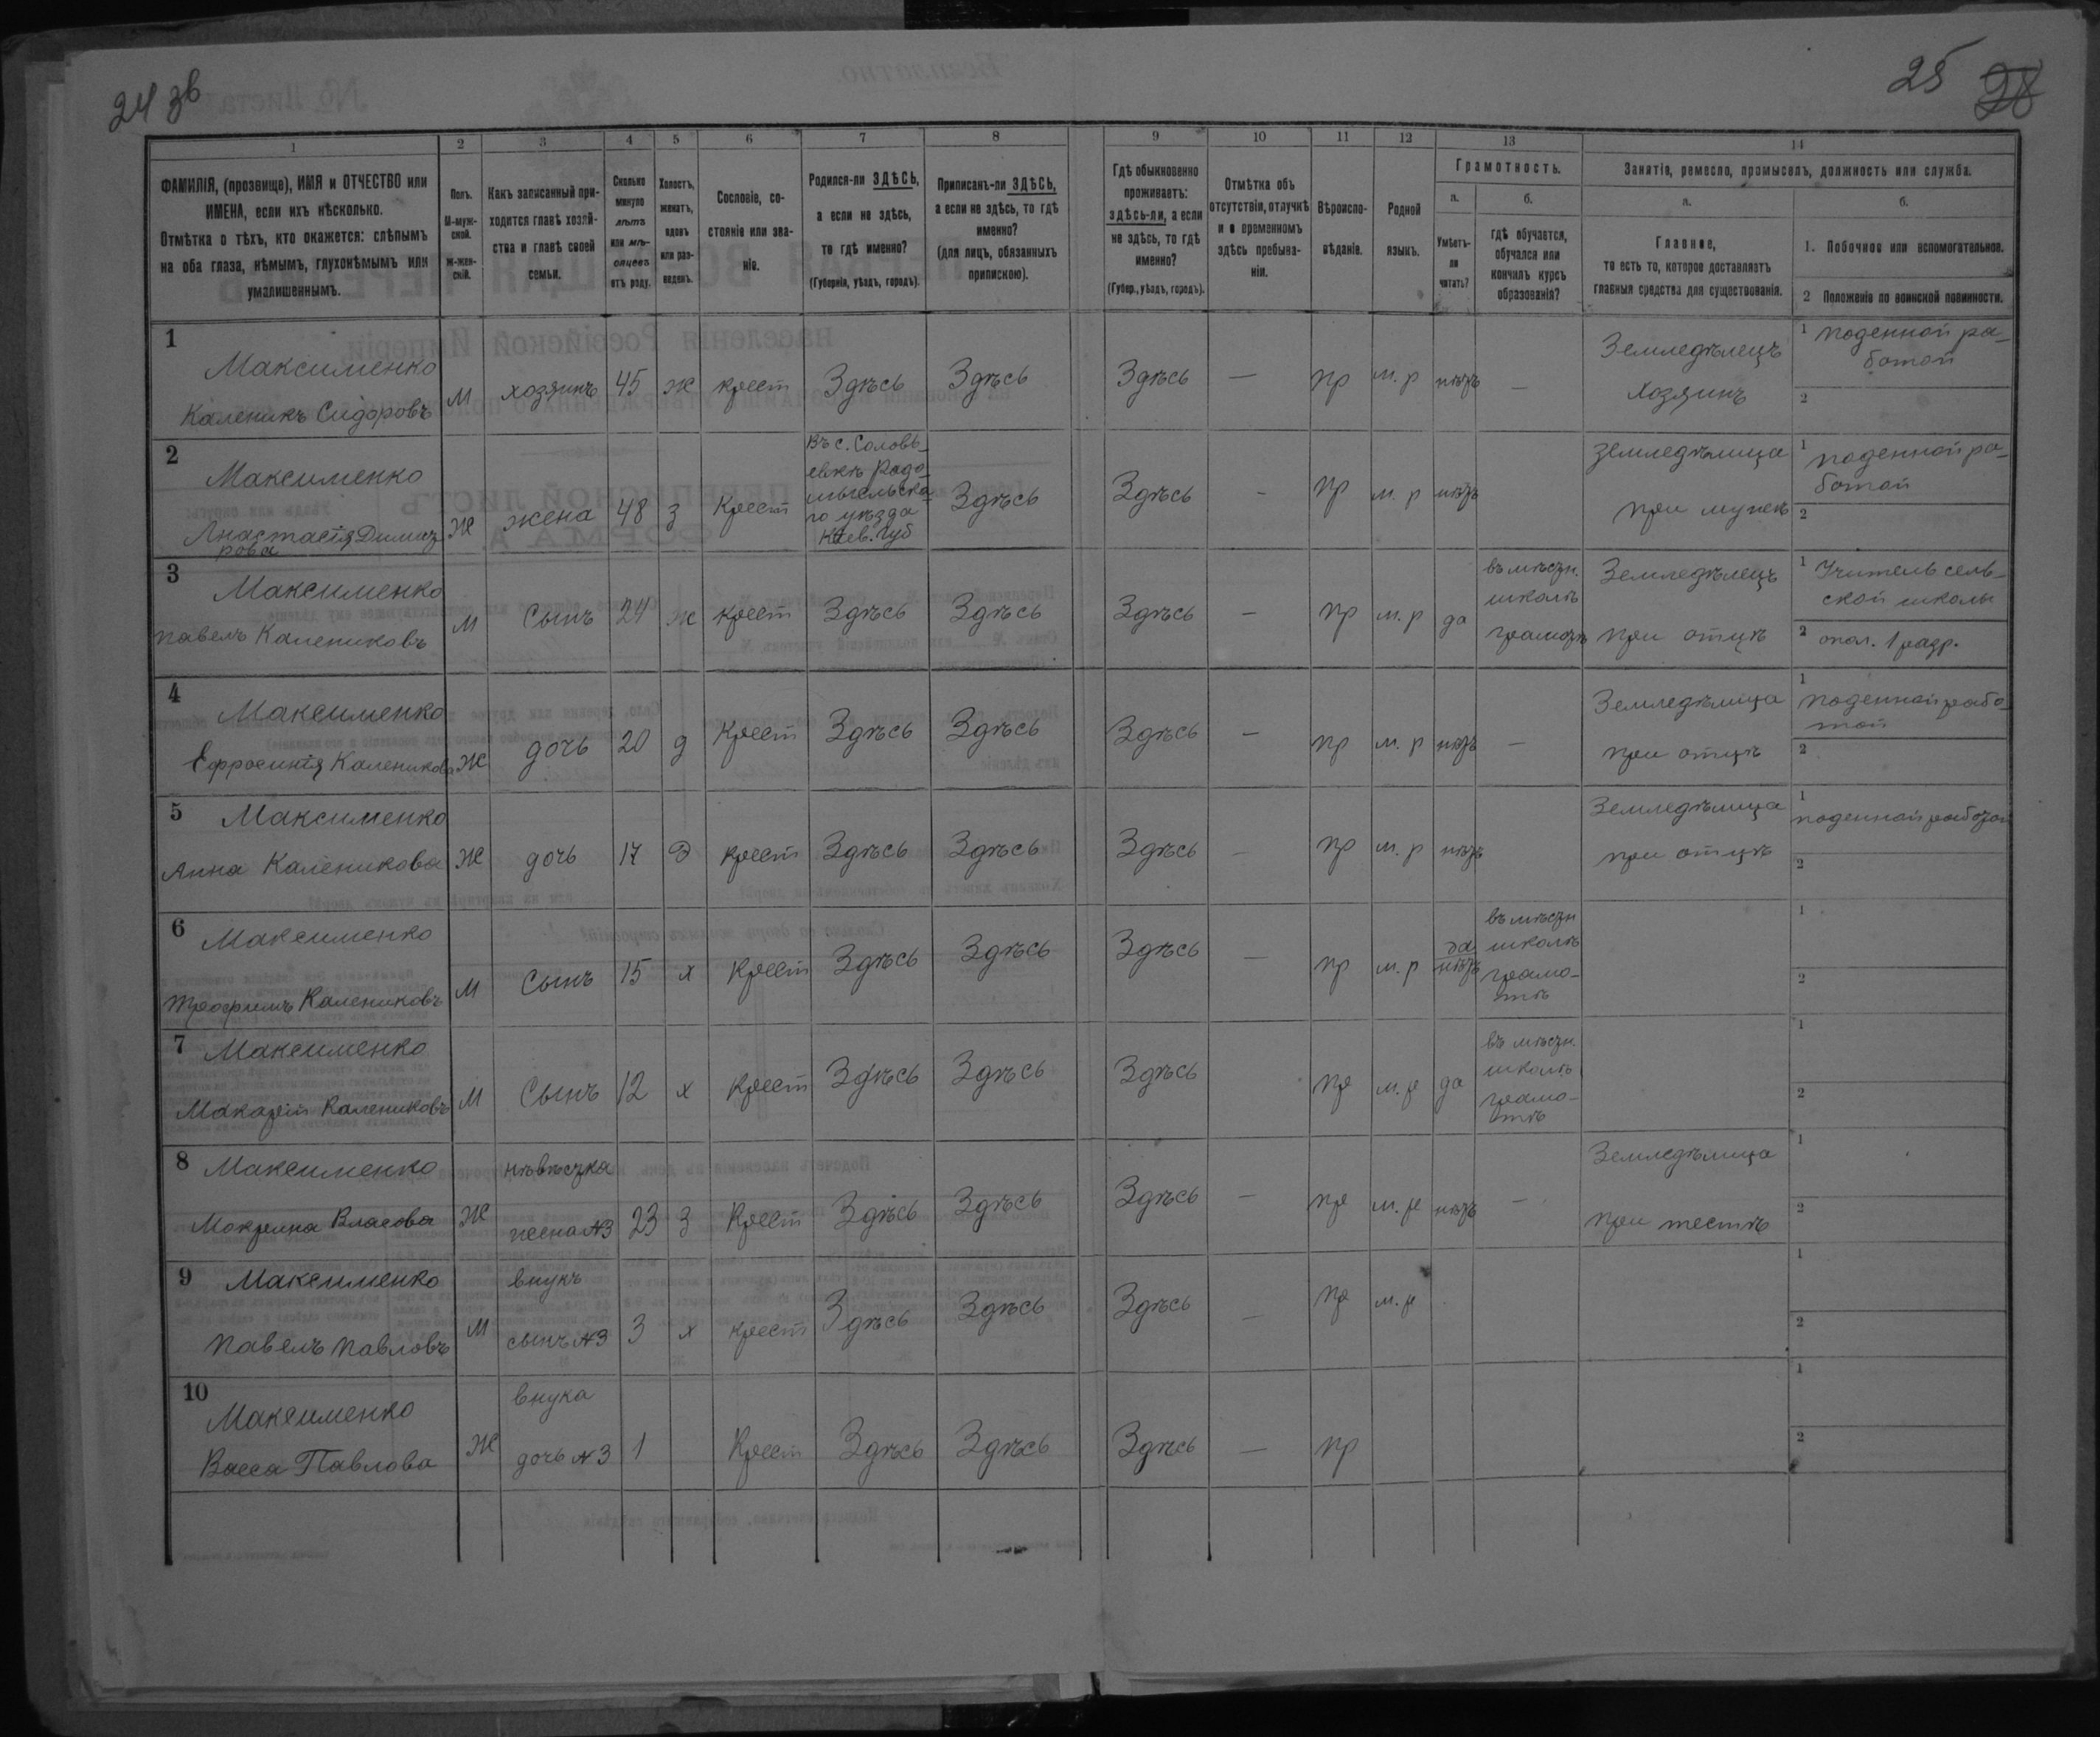 24 зв
25 28
1 2 3 4 5 6 7 8 9 10 11 12 13 14
ФАМИЛІЯ, (прозвище), ИМЯ и ОТЧЕСТВО или
ИМЕНА, если ихъ нѣсколько.
Отмѣтка о тѣхъ, кто окажется: слѣпымъ
на оба глаза, нѣмымъ, глухонѣмымъ или
умалишеннымъ.
Полъ.
М-муж-
ской.
Ж-жен-
скій.
Какъ записанный при-
ходится главѣ хозяй-
ства и главѣ своей
семьи.
Сколько
минуло
лѣтъ
или мѣ-
сяцевъ
отъ роду.
Холостъ,
женатъ,
вдовъ
или раз-
веденъ.
Сословіе, со-
стояніе или зва-
ніе.
Родился-ли ЗДѢСЬ,
а если не здѣсь,
то гдѣ именно?
(Губернія, уѣздъ, городъ).
Приписанъ-ли ЗДѢСЬ,
а если не здѣсь, то гдѣ
именно?
(для лицъ, обязанныхъ
припискою).
Гдѣ обыкновенно
проживаетъ:
здѣсь-ли, а если
не здѣсь, то гдѣ
именно?
(Губер., уѣздъ, городъ).
Отмѣтка объ
отсутствіи, отлучкѣ
и о временномъ
здѣсь пребыва-
ніи.
Вѣроиспо-
вѣданіе.
Родной
языкъ.
Грамотность.
а.
Умѣетъ-
ли
читать?
б.
гдѣ обучается,
обучался или
кончилъ курсъ
образованія?
Занятіе, ремесло, промыселъ, должность или служба.
а.
Главное,
то есть то, которое доставляетъ
главныя средства для существованія.
б.
1. Побочное или вспомогательное.
2 Положеніе по воинской повинности.
1
Максименко
Каленикъ Сидоровъ
М хозяинъ 45 ж крест Здѣсь Здѣсь Здѣсь — пр м. р нѣтъ —
Земледѣлецъ
хозяинъ
1 поденной ра-
ботой
2
2
Максименко
Анастасія Димит
рова
Ж жена 48 з Крест
Въ с. Соловь-
евкѣ Радо-
мысльска-
го уѣзда
Кіев. губ
Здѣсь Здѣсь - пр м. р нѣтъ
земледѣлица
при мужѣ
1 поденной ра-
ботой
2
3
Максименко
Павелъ Калениковъ
М Сынъ 24 ж крест Здѣсь Здѣсь Здѣсь — пр м. р да
въ мѣстн.
школѣ
грамотѣ
Земледѣлецъ
при отцѣ
1 Учитель сель-
ской школы
2 опол. 1 разр.
4
Максименко
Ефросинія Каленикова
Ж дочь 20 д Крест Здѣсь Здѣсь Здѣсь — пр м. р нѣтъ —
Земледѣлица
при отцѣ
1 поденной рабо-
той
2
5
Максименко
Анна Каленикова
Ж дочь 17 д крест Здѣсь Здѣсь Здѣсь — пр м. р нѣтъ
Земледѣлица
при отцѣ
1 поденной работой
2
6
Максименко
Трофимъ Калениковъ
М Сынъ 15 х Крест Здѣсь Здѣсь Здѣсь — пр м. р да
нѣтъ
въ мѣстн
школѣ
грамо-
тѣ
1
2
7
Максименко
Макарій Калениковъ
М Сынъ 12 х Крест Здѣсь Здѣсь Здѣсь пр м. р да
въ мѣстн.
школѣ
грамо-
тѣ
1
2
8
Максименко
Мокрина Власова
Ж
нѣвѣстка
жена №3
23 з Крест Здѣсь Здѣсь Здѣсь — пр м. р нѣтъ —
Земледѣлица
при тестѣ
1
2
9
Максименко
Павелъ Павловъ
М
внукъ
сынъ №3
3 х крест Здѣсь Здѣсь Здѣсь — пр м. р
1
2
10
Максименко
Васса Павлова
Ж
внука
дочь №3
1 Крест Здѣсь Здѣсь Здѣсь — пр
1
2